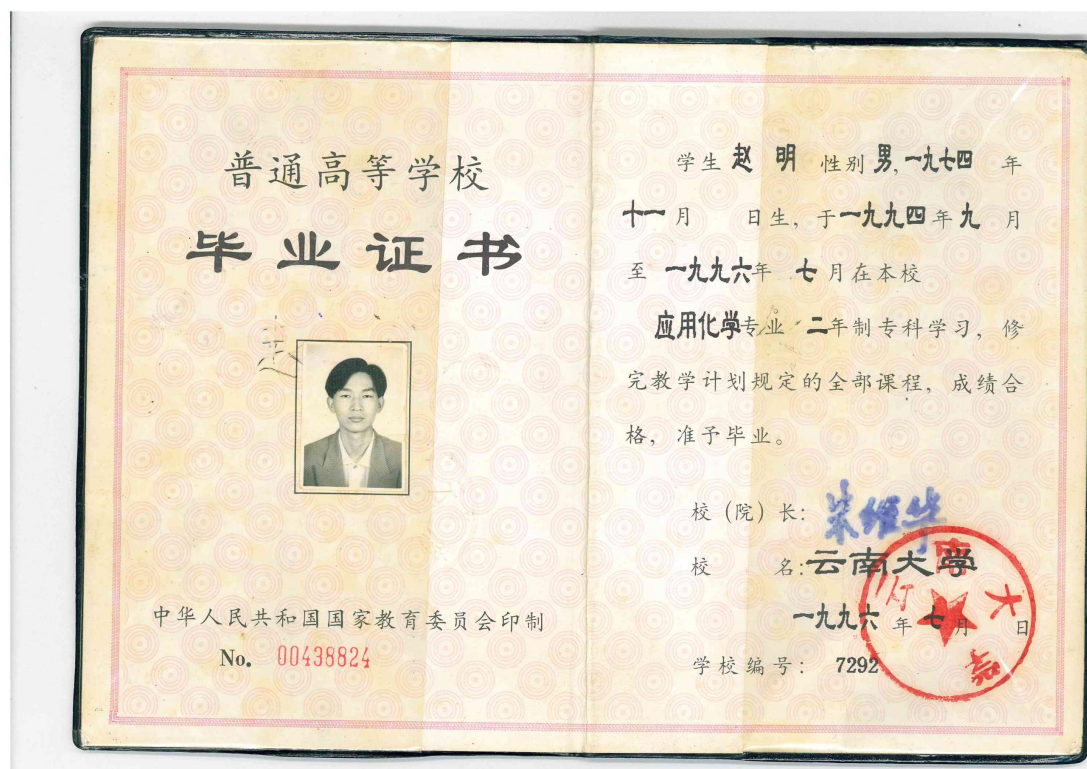 普通高等学校
毕业证书
中华人民共和国国家教育委员会印制
No. 00438824
学生 赵 明 性别 男, 一九七四 年
十一 月 日生, 于 一九九四 年 九 月
至 一九九六 年 七 月在本校
应用化学 专业 二 年制专科学习, 修
完教学计划规定的全部课程, 成绩合
格, 准予毕业。
校 (院) 长: 朱维华
校 名: 云南大学
一九九六 年 七 月 日
学校编号: 7292